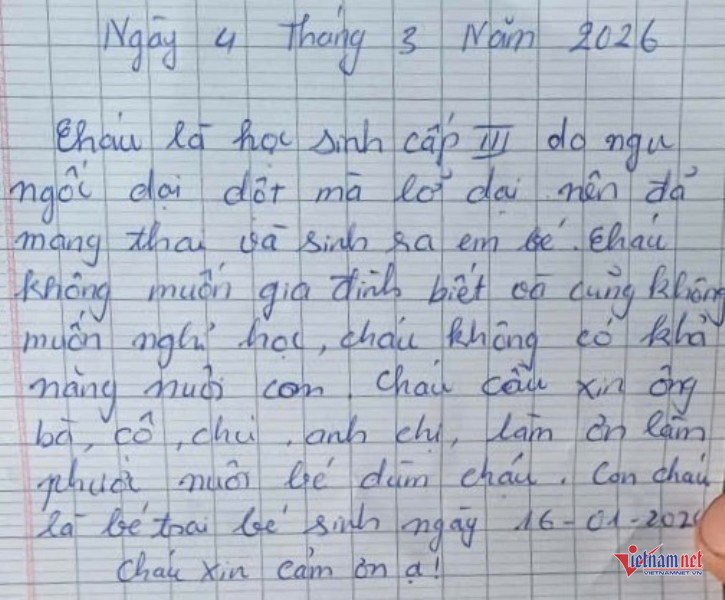 Ngày 4 tháng 3 Năm 2026
Cháu là học sinh cấp III do ngu
ngốc dại dột mà lở dại nên đả
mang thai và sinh ra em bé. Cháu
không muốn gia đình biết và củng không
muốn nghỉ học, cháu không có khả
năng nuôi con. Cháu cầu xin ông
bà, cô, chú, anh chị, làm ơn làm
phước nuôi bé dùm cháu. Con cháu
là bé trai bé sinh ngày 16-01-202
Cháu xin cảm ơn ạ!
vietnamnet
VIETNAMNET.VN